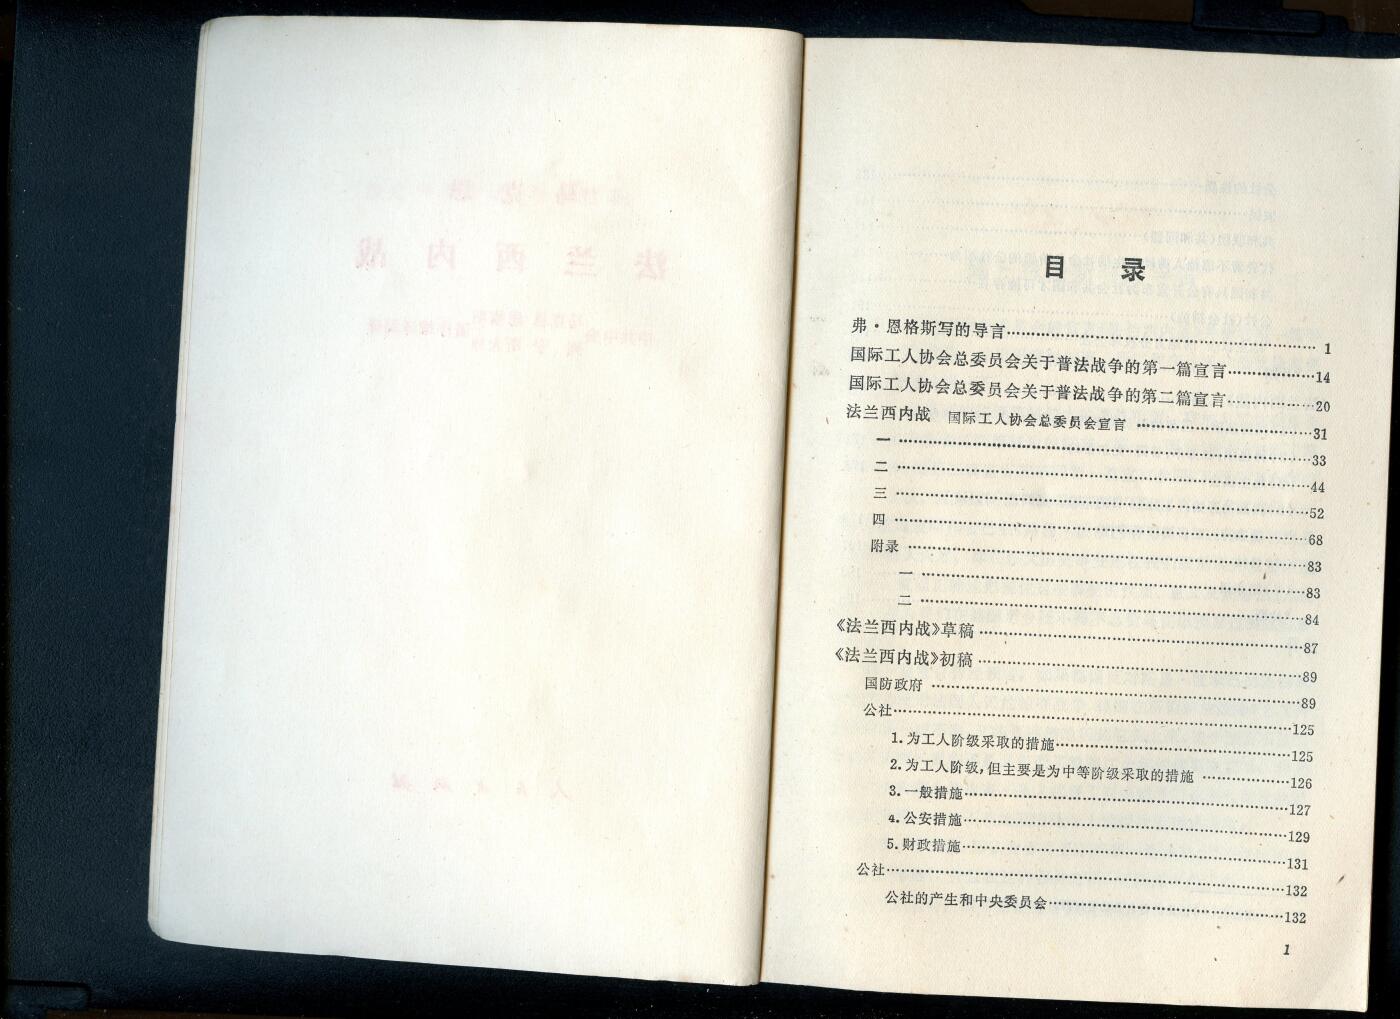 法兰西内战
目录
弗·恩格斯写的导言……1
国际工人协会总委员会关于普法战争的第一篇宣言……14
国际工人协会总委员会关于普法战争的第二篇宣言……20
法兰西内战 国际工人协会总委员会宣言……31
一……33
二……44
三……52
四……68
附录……83
一……83
二……84
《法兰西内战》草稿……87
《法兰西内战》初稿……89
国防政府……89
公社……125
1.为工人阶级采取的措施……125
2.为工人阶级,但主要是为中等阶级采取的措施……126
3.一般措施……127
4.公安措施……129
5.财政措施……131
公社……132
公社的产生和中央委员会……132
1